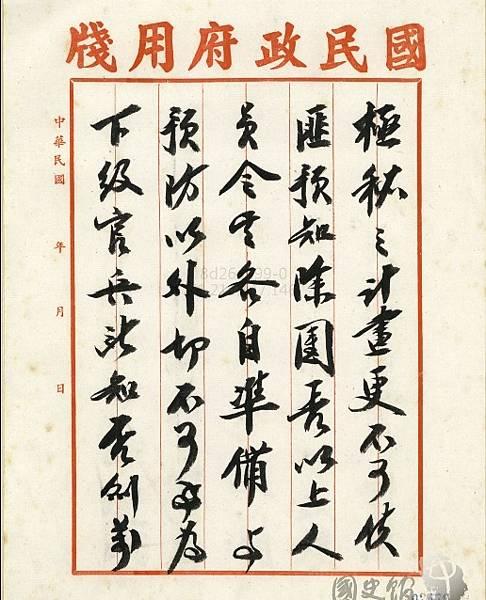 國民政府用牋
極秘之計畫更不可使
匪預知除團長以上人
員令其各自準備與
預防以外切不可再為
下級官兵所知否則萬
中華民國 年 月 日
國史館